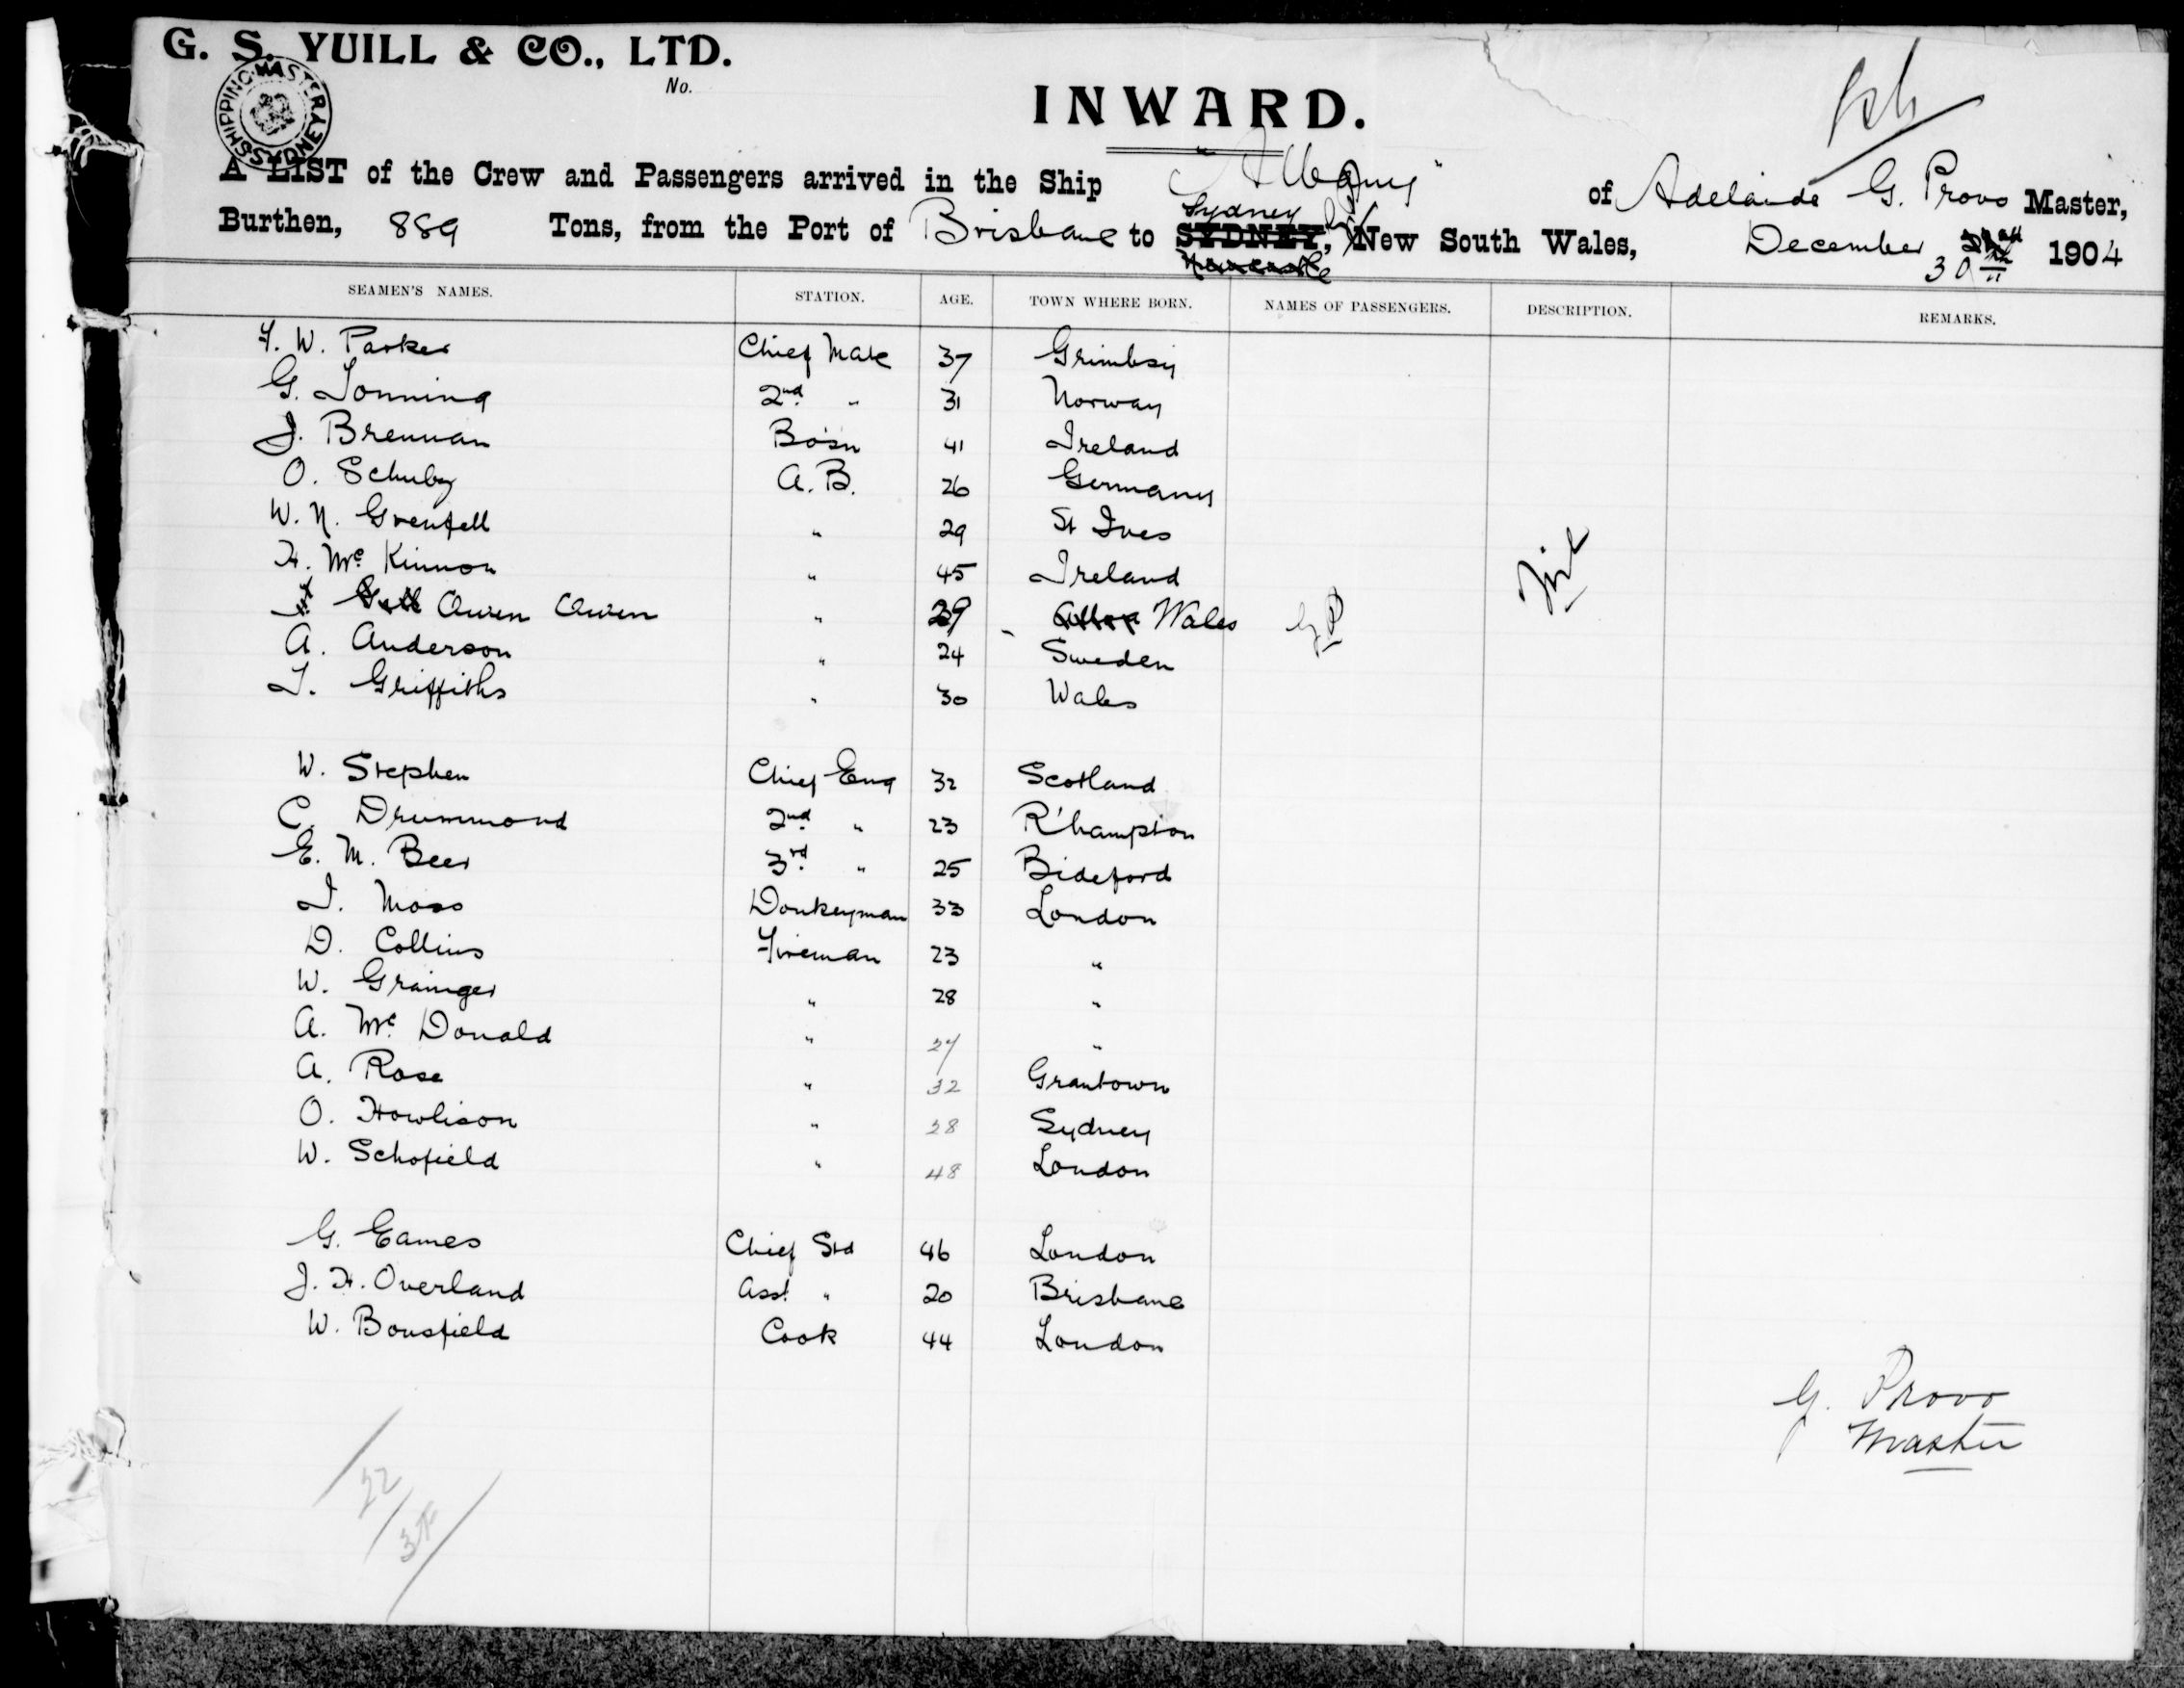 G. S. YUILL & CO., LTD.
No.
SHIPPING MASTER SYDNEY
INWARD.
A LIST of the Crew and Passengers arrived in the Ship of Adelaide G. Provo Master,
Sydney
Burthen, 889 Tons, from the Port of Brisbane to SYDNEY, New South Wales, December 1904
Newcastle 30
SEAMEN'S NAMES. STATION. AGE. TOWN WHERE BORN. NAMES OF PASSENGERS. DESCRIPTION. REMARKS.
F. W. Parker Chief Mate 37 Grimbsy
G. Lonning 2nd " 31 Norway
J. Brennan Bosn 41 Ireland
O. Schulz A.B. 26 Germany
W. N. Grenfell " 29 St Ives
H. Mc Kinnon " 45 Ireland
Owen Owen " 29 Wales GP Nil
A. Anderson " 24 Sweden
T. Griffiths " 30 Wales
W. Stephen Chief Eng 32 Scotland
C. Drummond 2nd " 23 R'hampton
E. M. Beer 3rd " 25 Bideford
J. Moss Donkeyman 33 London
D. Collins Fireman 23 "
W. Grainger " 28 "
A. Mc Donald " 27 "
A. Rose " 32 Grantown
O. Howlison " 28 Sydney
W. Schofield " 48 London
G. Eames Chief Std 46 London
J. H. Overland Asst " 20 Brisbane
W. Bousfield Cook 44 London
G. Provo
Master
22
3F